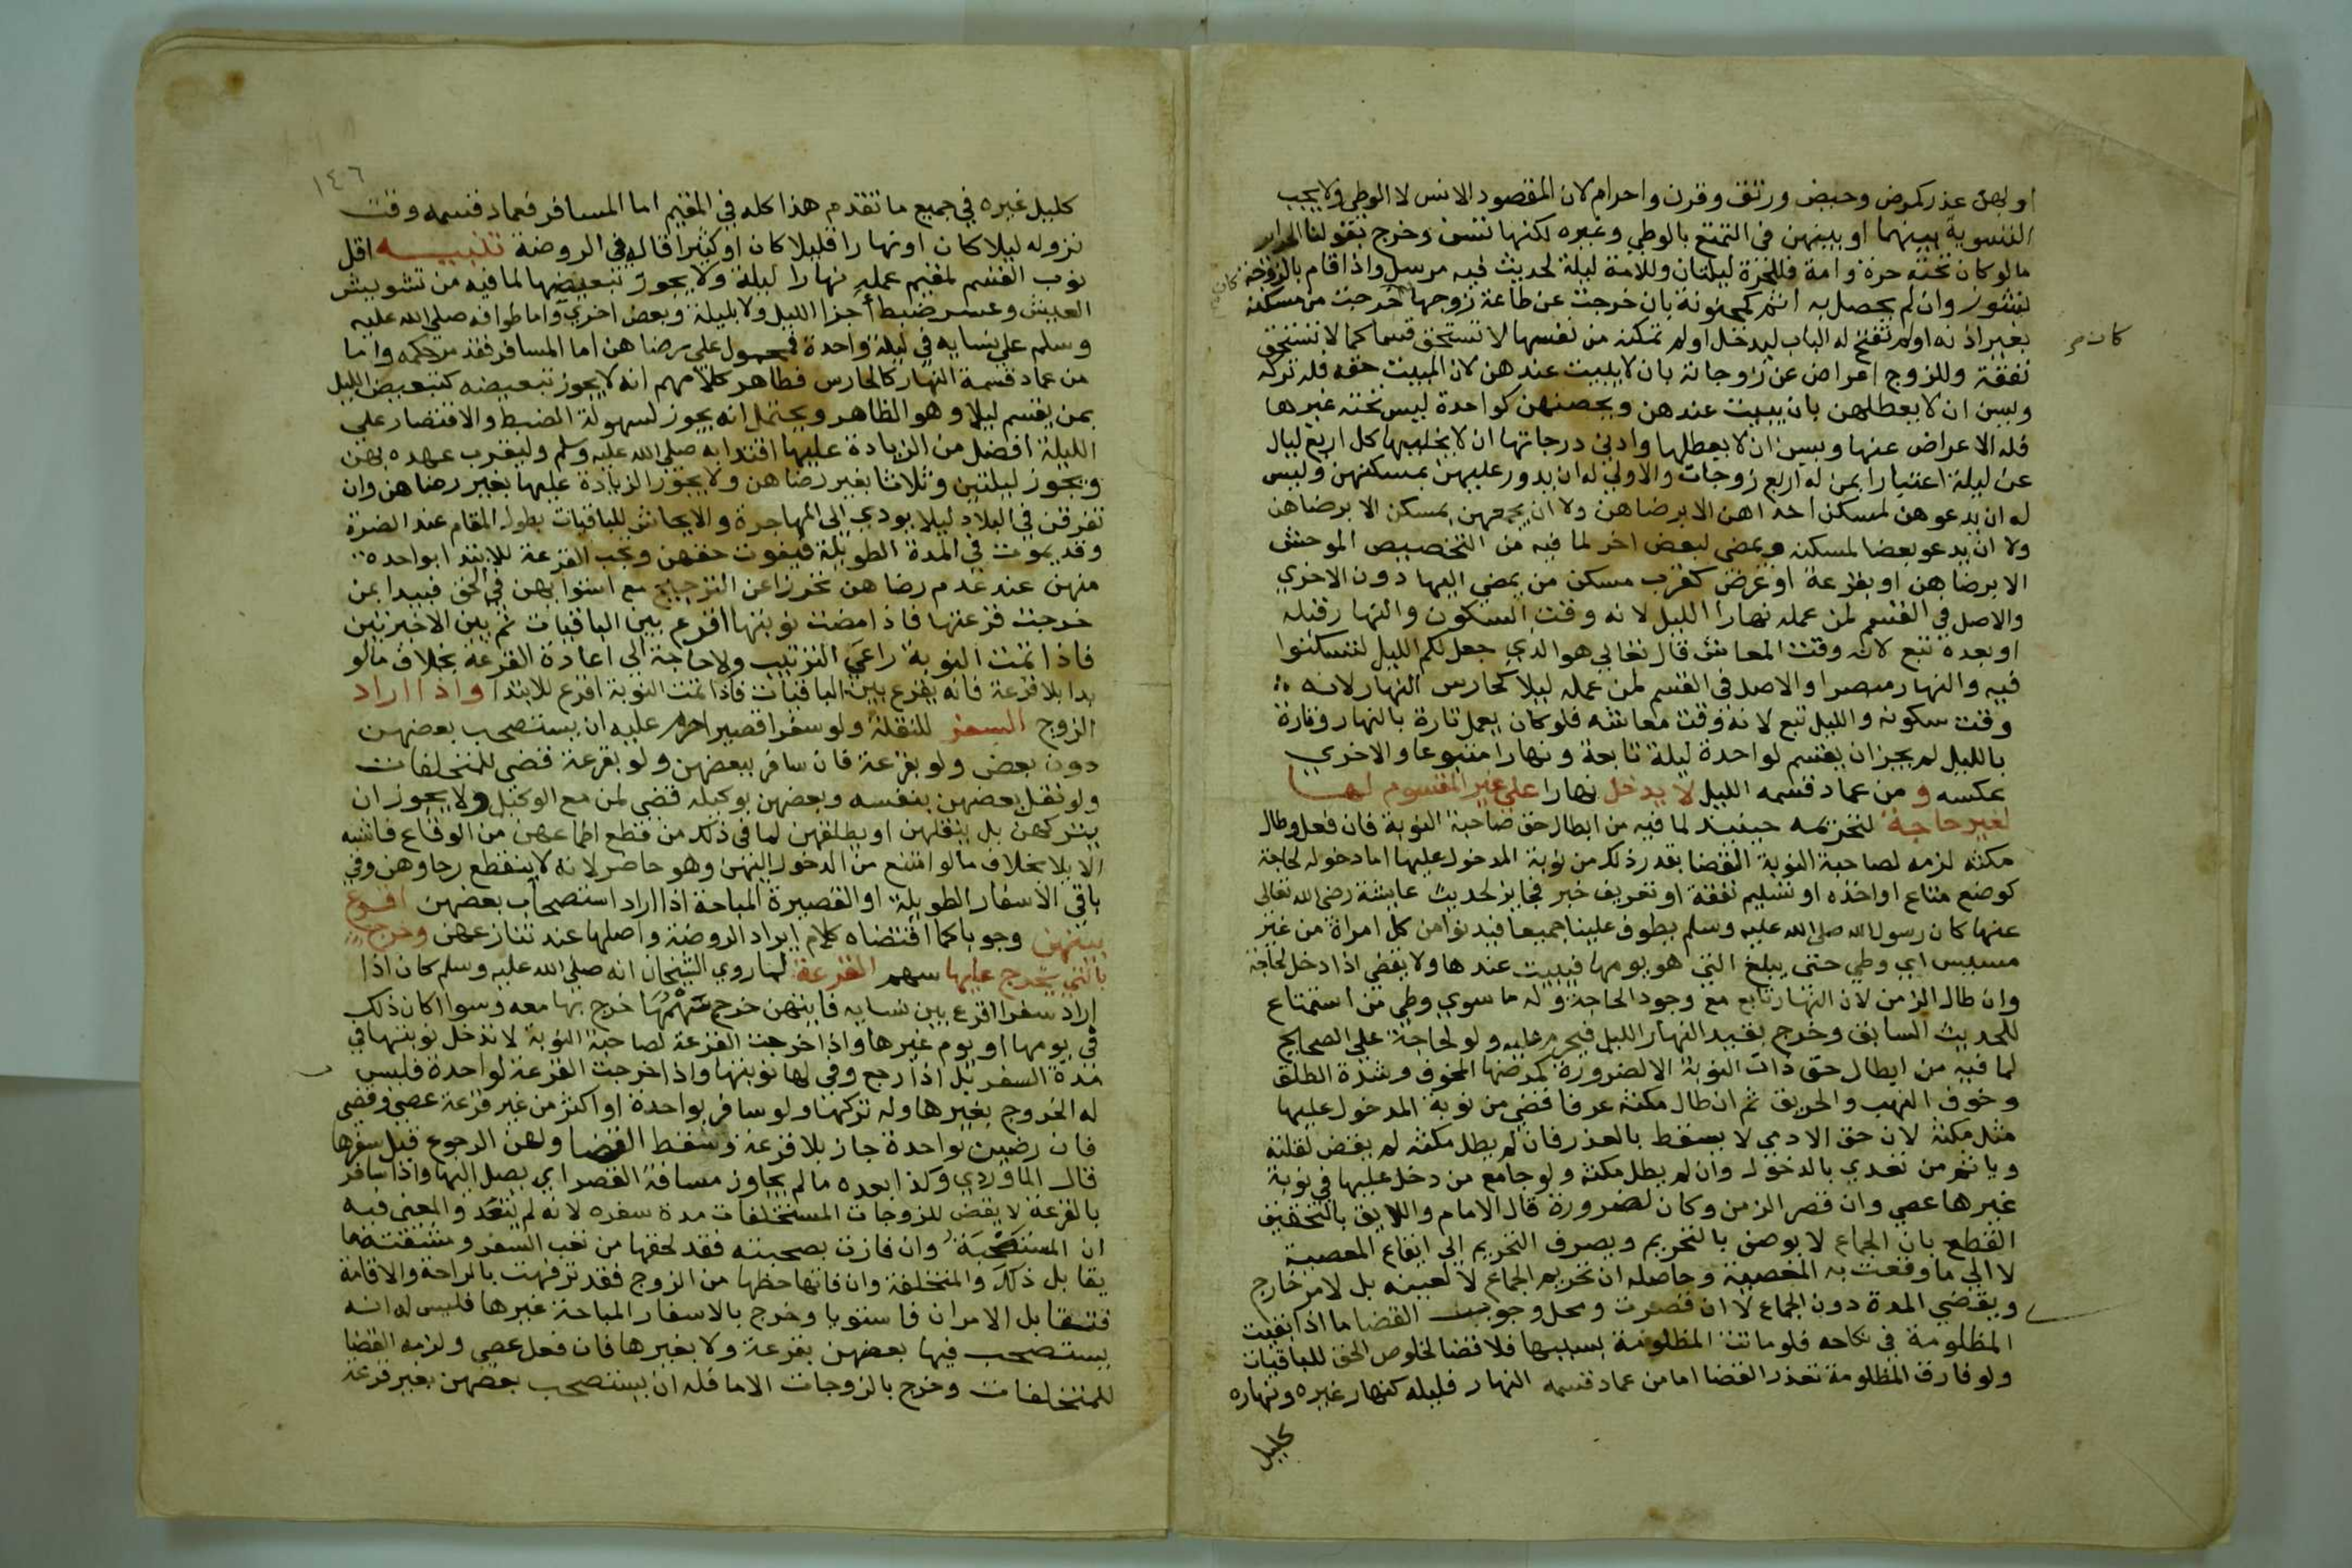 او بهن عذر كمرض وحيض ورتق وقرن واحرام لان المقصود الانس لا الوطي ولا يجب
التسوية بينهما او بينهن في التمتع بالوطي وغيره لكنها تسن وخرج بقولنا الحراير
مالو كان تحته حرة وامة فللحرة ليلتان وللامة ليلة لحديث فيه مرسل واذا اقام بالزوجة
نشوز وان لم يحصل به اثم كمجنونة بان خرجت عن طاعة زوجها خرجت من مسكنه
بغير اذنه او لم تفتح له الباب ليدخل او لم تمكنه من نفسها لا تستحق قسما كما لا تستحق
كان خر
نفقة وللزوج اعراض عن زوجاته بان لا يبيت عندهن لان المبيت حقه فله تركه
ويسن ان لا يعطلهن بان يبيت عندهن ويحصنهن كواحدة ليس تحته غيرها
فله الاعراض عنها ويسن ان لا يعطلها وادني درجاتها ان لا يخليها كل اربع ليال
عن ليلة اعتبارا بمن له اربع زوجات والاولي له ان يدور عليهن بمسكنهن وليس
له ان يدعوهن لمسكن احداهن الا برضاهن ولا ان يجمعهن بمسكن الا برضاهن
ولا ان يدعو بعضا لمسكنه ويمضي لبعض اخر لما فيه من التخصيص الموحش
الا برضاهن او بقرعة او غرض كقرب مسكن من يمضي اليها دون الاخري
والاصل في القسم لمن عمله نهارا الليل لانه وقت السكون والنهار قبله
او بعده تبع لانه وقت المعاش قال تعالي هو الذي جعل لكم الليل لتسكنوا
فيه والنهار مبصرا والاصل في القسم لمن عمله ليلا كحارس النهار لانه
وقت سكونه والليل تبع لانه وقت معاشه فلو كان يعمل تارة بالنهار وتارة
بالليل لم يجز ان يقسم لواحدة ليلة تابعة ونهارا متبوعا والاخري
عكسه و من عماد قسمه الليل لا يدخل نهارا علي غير المقسوم لها
لغير حاجة لتحريمه حينيذ لما فيه من ابطال حق صاحبة النوبة فان فعل وطال
مكثه لزمه لصاحبة النوبة القضا بقدر ذلك من نوبة المدخول عليها اما دخوله لحاجة
كوضع متاع او اخذه او تسليم نفقة او تعريف خبر فجايز لحديث عايشة رضي الله تعالي
عنها كان رسول الله صلى الله عليه وسلم يطوف علينا جميعا فيدنو من كل امراة من غير
مسيس اي وطي حتي يبلغ التي هو يومها فيبيت عندها ولا يقضي اذا دخل لحاجة
وان طال الزمن لان النهار تابع مع وجود الحاجة وله ما سوي وطي من استمتاع
للحديث السابق وخرج بقيد النهار الليل فيحرم عليه ولو لحاجة علي الصحيح
لما فيه من ابطال حق ذات النوبة الا لضرورة كمرضها المخوف وشدة الطلق
وخوف النهب والحريق ثم ان طال مكثه عرفا قضي من نوبة المدخول عليها
مثل مكثه لان حق الادمي لا يسقط بالعذر فان لم يطل مكثه لم يقض لقلته
وياثم من تعدي بالدخول وان لم يطل مكثه ولو جامع من دخل عليها في نوبة
غيرها عصي وان قصر الزمن وكان لضرورة قال الامام واللايق بالتحقيق
القطع بان الجماع لا يوصف بالتحريم ويصرف التحريم الي ايقاع المعصية
لا الي ما وقعت به المعصية وحاصله ان تحريم الجماع لا لعينه بل لامر خارج
ويقضي المدة دون الجماع لا ان قصرت ومحل وجوب القضا ما اذا بقيت
المظلومة في نكاحه فلو ماتت المظلومة بسببها فلا قضا لخلوص الحق للباقيات
ولو فارق المظلومة تعذر القضا اما من عماد قسمه النهار فليله كنهار غيره ونهاره
كليل
١٤٦
كليل غيره في جميع ما تقدم هذا كله في المقيم اما المسافر فعماد قسمه وقت
نزوله ليلا كان او نهارا قليلا كان او كثيرا قاله في الروضة تنبيه اقل
نوب القسم لمقيم عمله نهارا ليلة ولا يجوز تبعيضها لما فيه من تشويش
العيش وعسر ضبط اجزا الليل ولا بليلة وبعض اخري واما طوافه صلي الله عليه
وسلم علي نسايه في ليلة واحدة فمحمول علي رضاهن اما المسافر فقد مر حكمه واما
من عماد قسمة النهار كالحارس فظاهر كلامهم انه لا يجوز تبعيضه كتبعيض الليل
بمن يقسم ليلا وهو الظاهر ويحتمل انه يجوز لسهولة الضبط والاقتصار علي
الليلة افضل من الزيادة عليها اقتدا به صلي الله عليه وسلم وليقرب عهده بهن
ويجوز ليلتين وثلاثا بغير رضاهن ولا يجوز الزيادة عليها بغير رضاهن وان
تفرقن في البلاد ليلا يودي الي المهاجرة والايحاش للباقيات بطول المقام عند الضرة
وقد يموت في المدة الطويلة فيفوت حقهن ويجب القرعة للابتدا بواحدة
منهن عند عدم رضاهن تحرزا عن الترجيح مع استوايهن في الحق فيبدا بمن
خرجت قرعتها فاذا مضت نوبتها اقرع بين الباقيات ثم بين الاخيرتين
فاذا تمت النوبة راعي الترتيب ولا حاجة الي اعادة القرعة بخلاف ما لو
بدا بلا قرعة فانه يقرع بين الباقيات فاذا تمت النوبة اقرع للابتدا واذا اراد
الزوج السفر للنقلة ولو سفرا قصيرا حرم عليه ان يستصحب بعضهن
دون بعض ولو بقرعة فان سافر ببعضهن ولو بقرعة قضي للمتخلفات
ولو نقل بعضهن بنفسه وبعضهن بوكيله قضي لمن مع الوكيل ولا يجوز ان
يتركهن بل ينقلهن او يطلقهن لما في ذلك من قطع اطماعهن من الوقاع فاشبه
الايلا بخلاف ما لو امتنع من الدخول اليهن وهو حاضر لانه لا ينقطع رجاوهن وفي
باقي الاسفار الطويلة او القصيرة المباحة اذا اراد استصحاب بعضهن اقرع
بينهن وجوبا كما اقتضاه كلام ايراد الروضة واصلها عند تنازعهن وخرج
بالتي يخرج عليها سهم القرعة لما روي الشيخان انه صلي الله عليه وسلم كان اذا
اراد سفرا اقرع بين نسايه فايتهن خرج سهمها خرج بها معه وسوا كان ذلك
في يومها او يوم غيرها واذا خرجت القرعة لصاحبة النوبة لا تدخل نوبتها في
مدة السفر بل اذا رجع وفي لها نوبتها واذا خرجت القرعة لواحدة فليس
له الخروج بغيرها وله تركها ولو سافر بواحدة او اكثر من غير قرعة عصي وقضي
فان رضين بواحدة جاز بلا قرعة وسقط القضا ولهن الرجوع قبل سفرها
قال الماوردي وكذا بعده ما لم يجاوز مسافة القصر اي يصل اليها واذا سافر
بالقرعة لا يقض للزوجات المستخلفات مدة سفره لانه لم يتعد والمعني فيه
ان المستصحبة وان فازت بصحبته فقد لحقها من تعب السفر ومشقته ما
يقابل ذلك والمتخلفة وان فاتها حظها من الزوج فقد ترفهت بالراحة والاقامة
فتقابل الامران فاستويا وخرج بالاسفار المباحة غيرها فليس له انه
يستصحب فيها بعضهن بقرعة ولا بغيرها فان فعل عصي ولزمه القضا
للمتخلفات وخرج بالزوجات الاما فله ان يستصحب بعضهن بغير قرعة